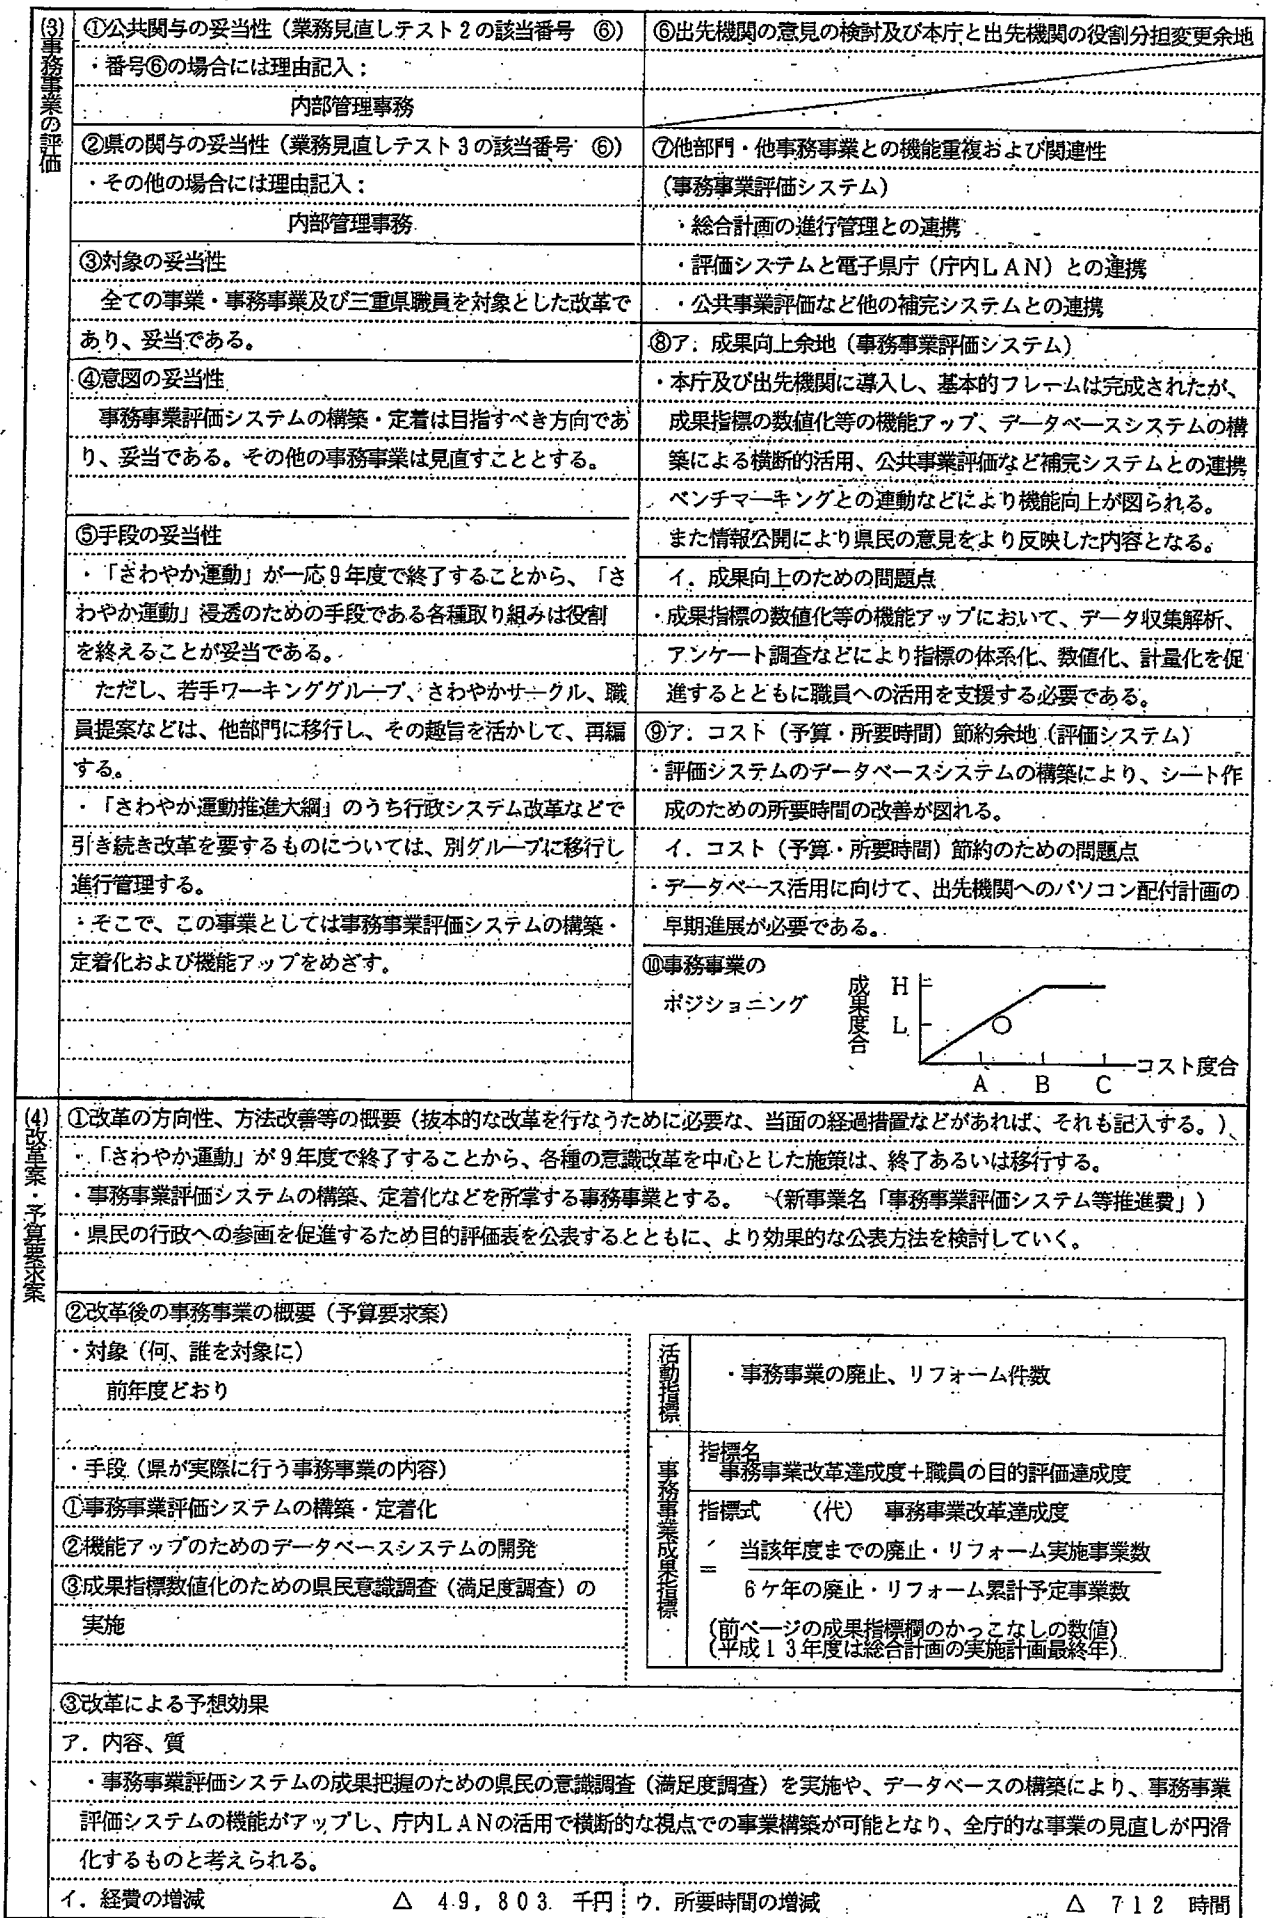 (3)事務事業の評価
①公共関与の妥当性（業務見直しテスト2の該当番号　⑥）
・番号⑥の場合には理由記入：
内部管理事務
②県の関与の妥当性（業務見直しテスト3の該当番号　⑥）
・その他の場合には理由記入：
内部管理事務
③対象の妥当性
全ての事業・事務事業及び三重県職員を対象とした改革で
あり、妥当である。
④意図の妥当性
事務事業評価システムの構築・定着は目指すべき方向であ
り、妥当である。その他の事務事業は見直すこととする。
⑤手段の妥当性
・「さわやか運動」が一応9年度で終了することから、「さ
わやか運動」浸透のための手段である各種取り組みは役割
を終えることが妥当である。
ただし、若手ワーキンググループ、さわやかサークル、職
員提案などは、他部門に移行し、その趣旨を活かして、再編
する。
・「さわやか運動推進大綱」のうち行政システム改革などで
引き続き改革を要するものについては、別グループに移行し
進行管理する。
・そこで、この事業としては事務事業評価システムの構築・
定着化および機能アップをめざす。
⑥出先機関の意見の検討及び本庁と出先機関の役割分担変更余地
⑦他部門・他事務事業との機能重複および関連性
（事務事業評価システム）
・総合計画の進行管理との連携
・評価システムと電子県庁（庁内LAN）との連携
・公共事業評価など他の補完システムとの連携
⑧ア．成果向上余地（事務事業評価システム）
・本庁及び出先機関に導入し、基本的フレームは完成されたが、
成果指標の数値化等の機能アップ、データベースシステムの構
築による横断的活用、公共事業評価など補完システムとの連携
ベンチマーキングとの連動などにより機能向上が図られる。
また情報公開により県民の意見をより反映した内容となる。
イ．成果向上のための問題点
・成果指標の数値化等の機能アップにおいて、データ収集解析、
アンケート調査などにより指標の体系化、数値化、計量化を促
進するとともに職員への活用を支援する必要である。
⑨ア．コスト（予算・所要時間）節約余地（評価システム）
・評価システムのデータベースシステムの構築により、シート作
成のための所要時間の改善が図れる。
イ．コスト（予算・所要時間）節約のための問題点
・データベース活用に向けて、出先機関へのパソコン配付計画の
早期進展が必要である。
⑩事務事業の
ポジショニング
成果度合
H
L
コスト度合
A　B　C
(4)改革案・予算要求案
①改革の方向性、方法改善等の概要（抜本的な改革を行なうために必要な、当面の経過措置などがあれば、それも記入する。）
・「さわやか運動」が9年度で終了することから、各種の意識改革を中心とした施策は、終了あるいは移行する。
・事務事業評価システムの構築、定着化などを所掌する事務事業とする。　（新事業名「事務事業評価システム等推進費」）
・県民の行政への参画を促進するため目的評価表を公表するとともに、より効果的な公表方法を検討していく。
②改革後の事務事業の概要（予算要求案）
・対象（何、誰を対象に）
前年度どおり
・手段（県が実際に行う事務事業の内容）
①事務事業評価システムの構築・定着化
②機能アップのためのデータベースシステムの開発
③成果指標数値化のための県民意識調査（満足度調査）の
実施
活動指標
・事務事業の廃止、リフォーム件数
事務事業成果指標
指標名
事務事業改革達成度＋職員の目的評価達成度
指標式　（代）　事務事業改革達成度
＝ 当該年度までの廃止・リフォーム実施事業数
6ケ年の廃止・リフォーム累計予定事業数
（前ページの成果指標欄のかっこなしの数値）
（平成13年度は総合計画の実施計画最終年）
③改革による予想効果
ア．内容、質
・事務事業評価システムの成果把握のための県民の意識調査（満足度調査）を実施や、データベースの構築により、事務事業
評価システムの機能がアップし、庁内LANの活用で横断的な視点での事業構築が可能となり、全庁的な事業の見直しが円滑
化するものと考えられる。
イ．経費の増減　△　49，803　千円　ウ．所要時間の増減　△　712　時間